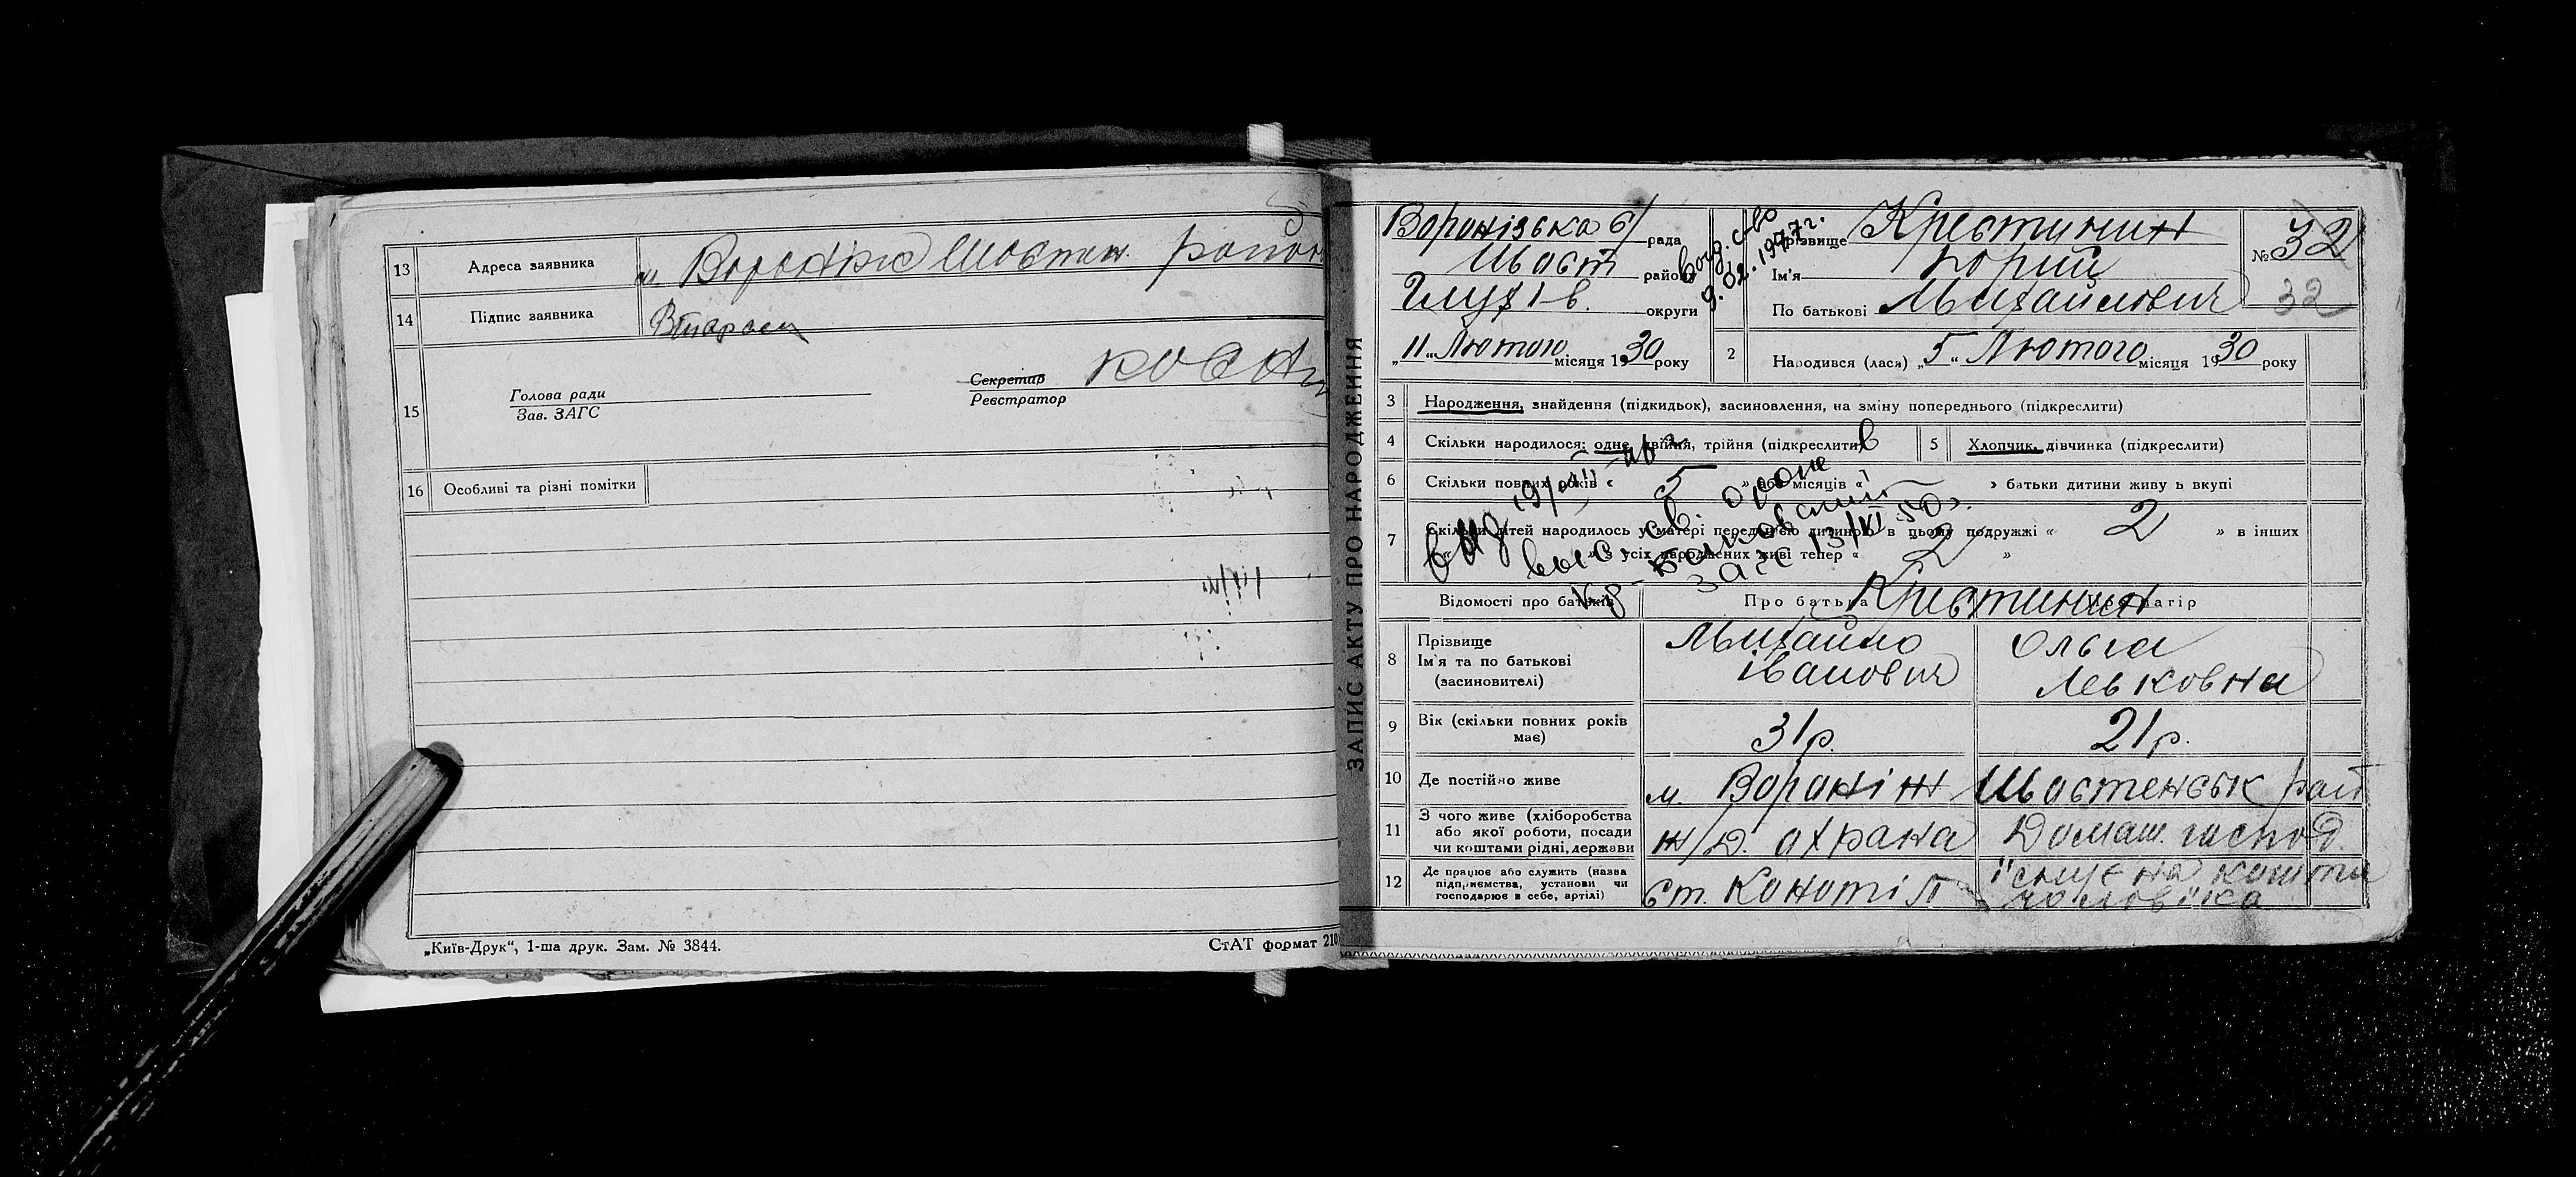 13 Адреса заявника м. Вороніж Шостен. район
14 Підпис заявника
15 Голова ради
Зав. ЗАГС
Секретар
Реєстратор
16 Особливі та різні помітки
„Київ-Друк“, 1-ша друк. Зам. № 3844.
СтАТ формат 210
ЗАПИС АКТУ ПРО НАРОДЖЕННЯ
Воронізька с/ рада
Шост район
Глухів. округи
„11“ Лютого місяця 1930 року
9.02.1977г.
Прізвище Крестинин
Ім'я Юрій
По батькові Михайлович
№ 32
32
2 Народився (лася) „5“ Лютого місяця 1930 року
3 Народження, знайдення (підкидьок), засиновлення, на зміну попереднього (підкреслити)
4 Скільки народилося: одне, двійня, трійня (підкреслити)
5 Хлопчик, дівчинка (підкреслити)
6 Скільки повних років « 5 » або місяців « — » батьки дитини живуть вкупі
7 Скільки дітей народилось у матері перед цією дитиною в цьому подружжі « 2 » в інших
« » з усіх народжених живі тепер « 2 »
загс 13/XI 50г.
Відомості про батьків Про батька Про матір
Крестинин
8 Прізвище
Ім'я та по батькові
(засновителі)
Михайло
Іванович
Ольга
Левковна
9 Вік (скільки повних років
має)
31р.
21р.
10 Де постійно живе м. Вороніж Шостенськ рай
11 З чого живе (хліборобства
або якої роботи, посади
чи коштами рідні, держави
ж/д. охрана
Домаш. господ.
12 Де працює або служить (назва
підприємства, установи чи
господарює в себе, артілі)
ст. Конотіп
існує на кошти
чоловіка